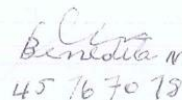 Benedita N
45 76 70 78